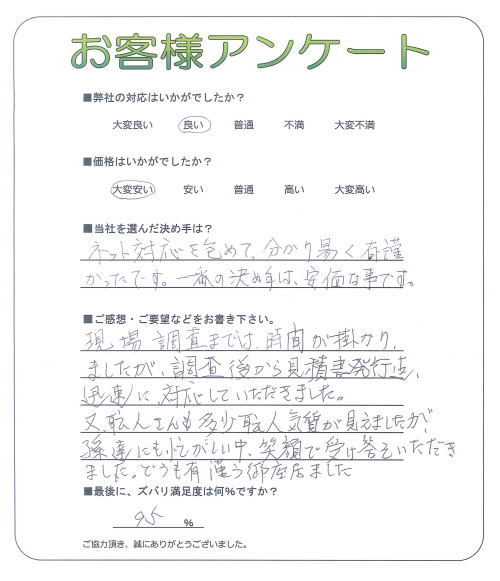 お客様アンケート
■弊社の対応はいかがでしたか？
大変良い 良い 普通 不満 大変不満
■価格はいかがでしたか？
大変安い 安い 普通 高い 大変高い
■当社を選んだ決め手は？
ネット対応を包めて、分かり易く有謹
かったです。一番の決め手は、安価な事です。
■ご感想・ご要望などをお書き下さい。
現場調査までは、時間が掛かり、
ましたが、調査後から見積書発行迄、
迅速に、対応していただきました。
又、職人さんも多少職人気質が見えましたが、
孫達にも忙がしい中、笑顔で受け答えいただき
ました。どうも有難う御座居ました
■最後に、ズバリ満足度は何％ですか？
95 %
ご協力頂き、誠にありがとうございました。